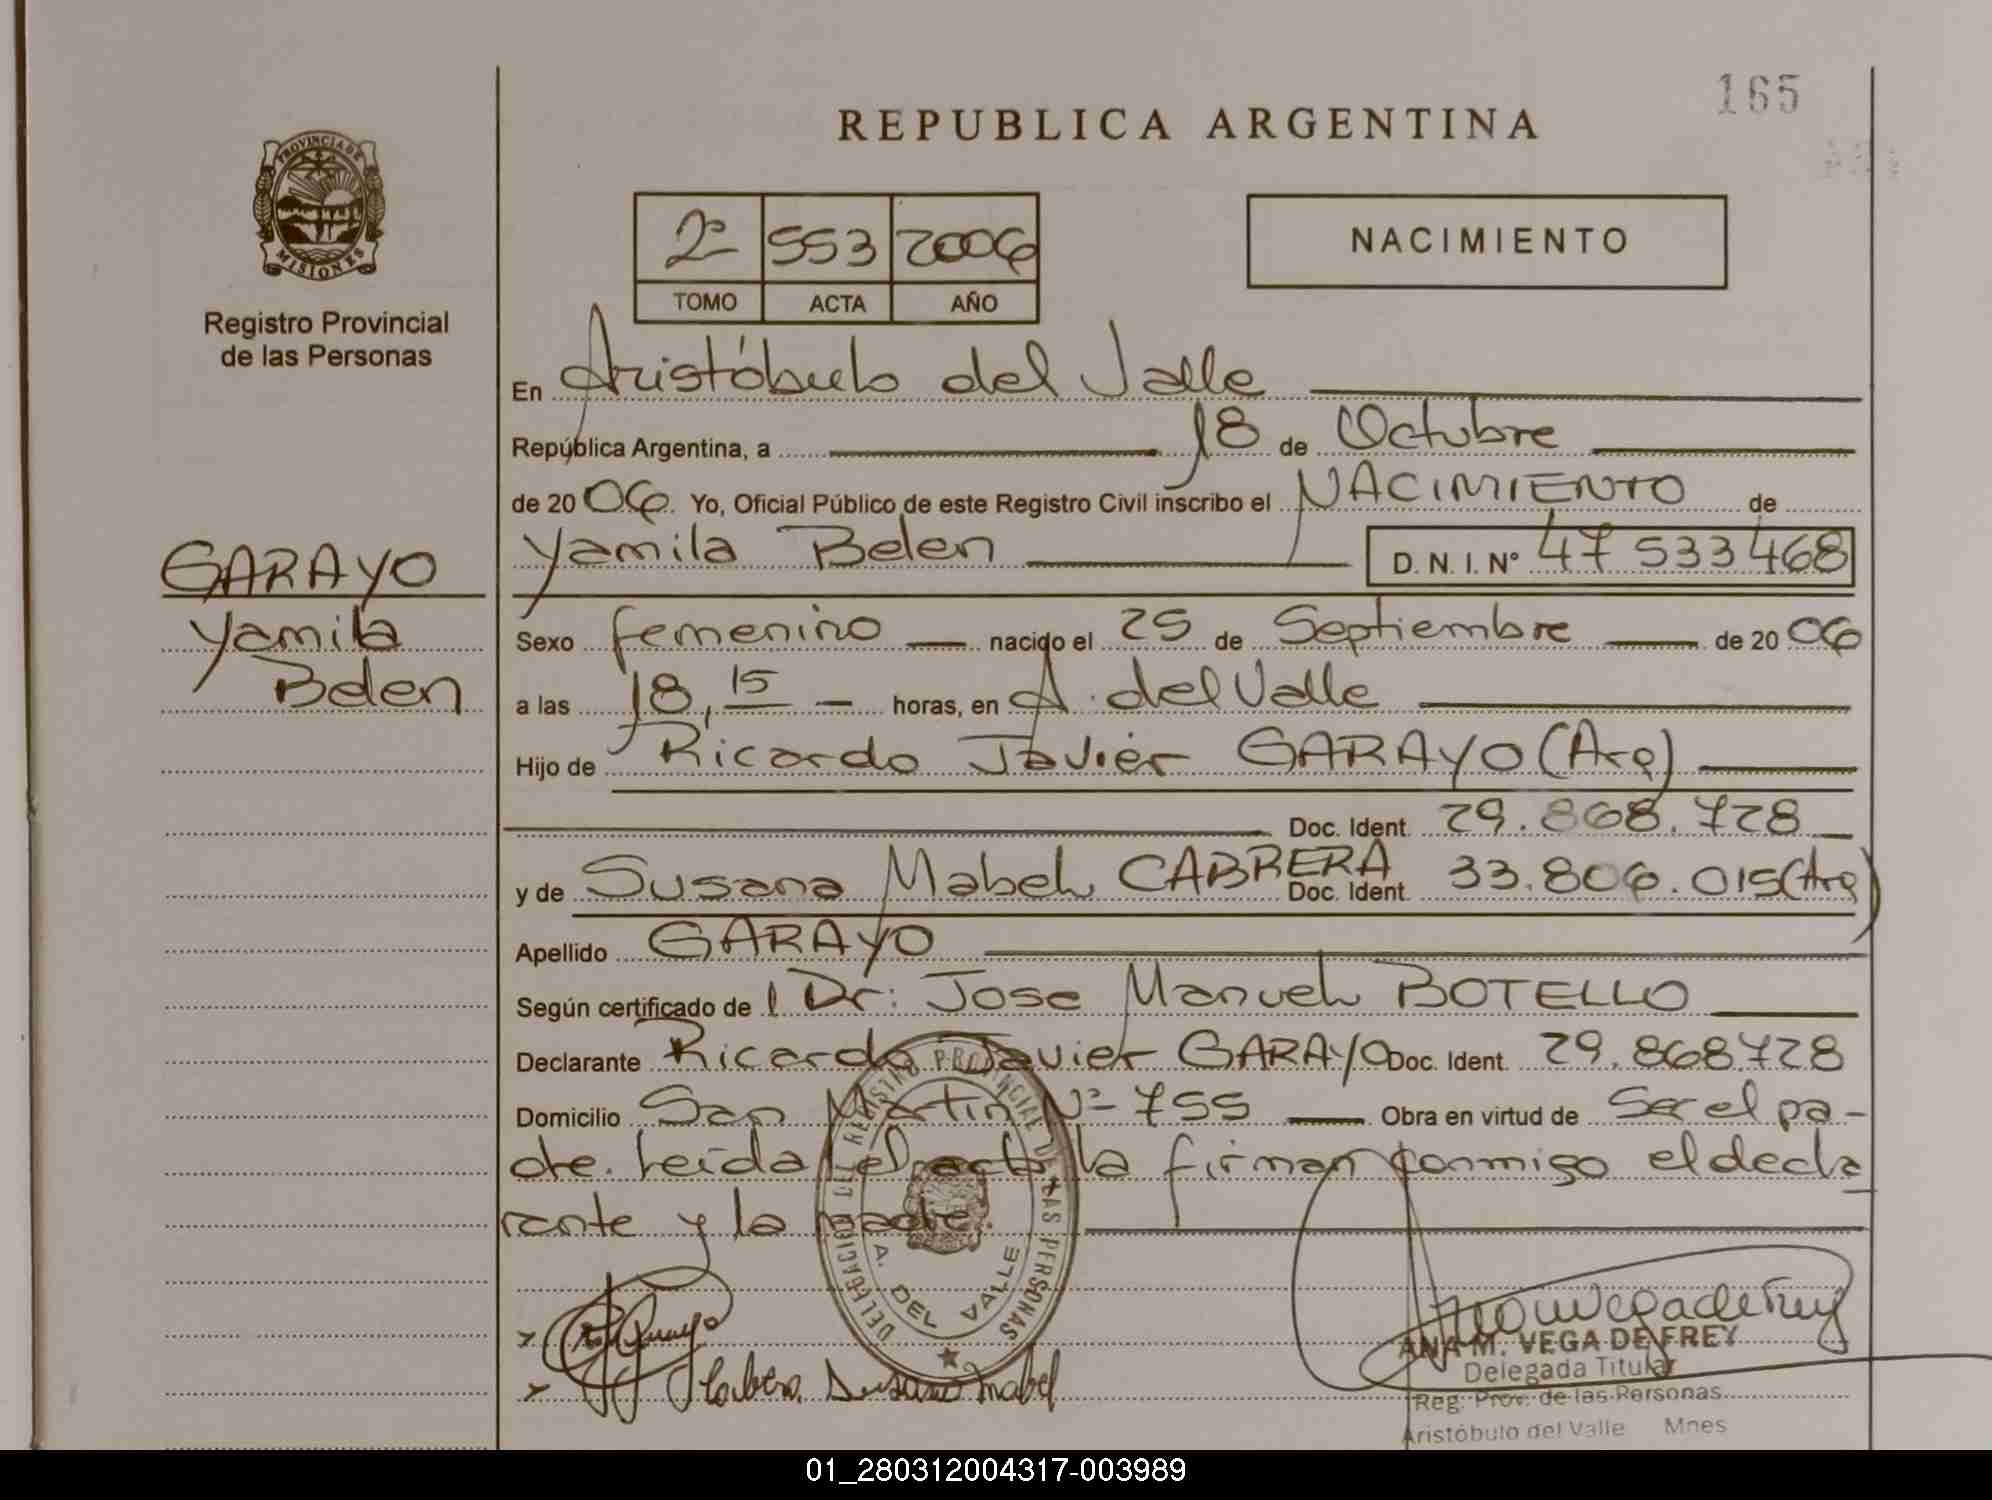 165
REPUBLICA ARGENTINA
PROVINCIA DE
MISIONES
Registro Provincial
de las Personas
2º 553 2006
TOMO ACTA AÑO
NACIMIENTO
En Aristóbulo del Valle
República Argentina, a 18 de Octubre
de 2006. Yo, Oficial Público de este Registro Civil inscribo el NACIMIENTO de
Yamila Belen D. N. I. Nº 47 533 468
GARAYO
Yamila
Belen
Sexo femenino nacido el 25 de Septiembre de 2006
a las 18,15 horas, en A. del Valle
Hijo de Ricardo Javier GARAYO (Arg)
Doc. Ident. 29.868.728
y de Susana Mabel CABRERA Doc. Ident. 33.806.015 (Arg)
Apellido GARAYO
Según certificado de l Dr: Jose Manuel BOTELLO
Declarante Ricardo Javier GARAYO Doc. Ident. 29.868.728
Domicilio San Martin Nº 755 Obra en virtud de Ser el pa-
dre. Leída el acta la firman conmigo el decla
rante y la madre.
DELEGACION DEL REGISTRO PROVINCIAL DE LAS PERSONAS
A. DEL VALLE
Cabrera Susana Mabel
ANA M. VEGA DE FREY
Delegada Titular
Reg. Prov. de las Personas
Aristóbulo del Valle Mnes
01_280312004317-003989